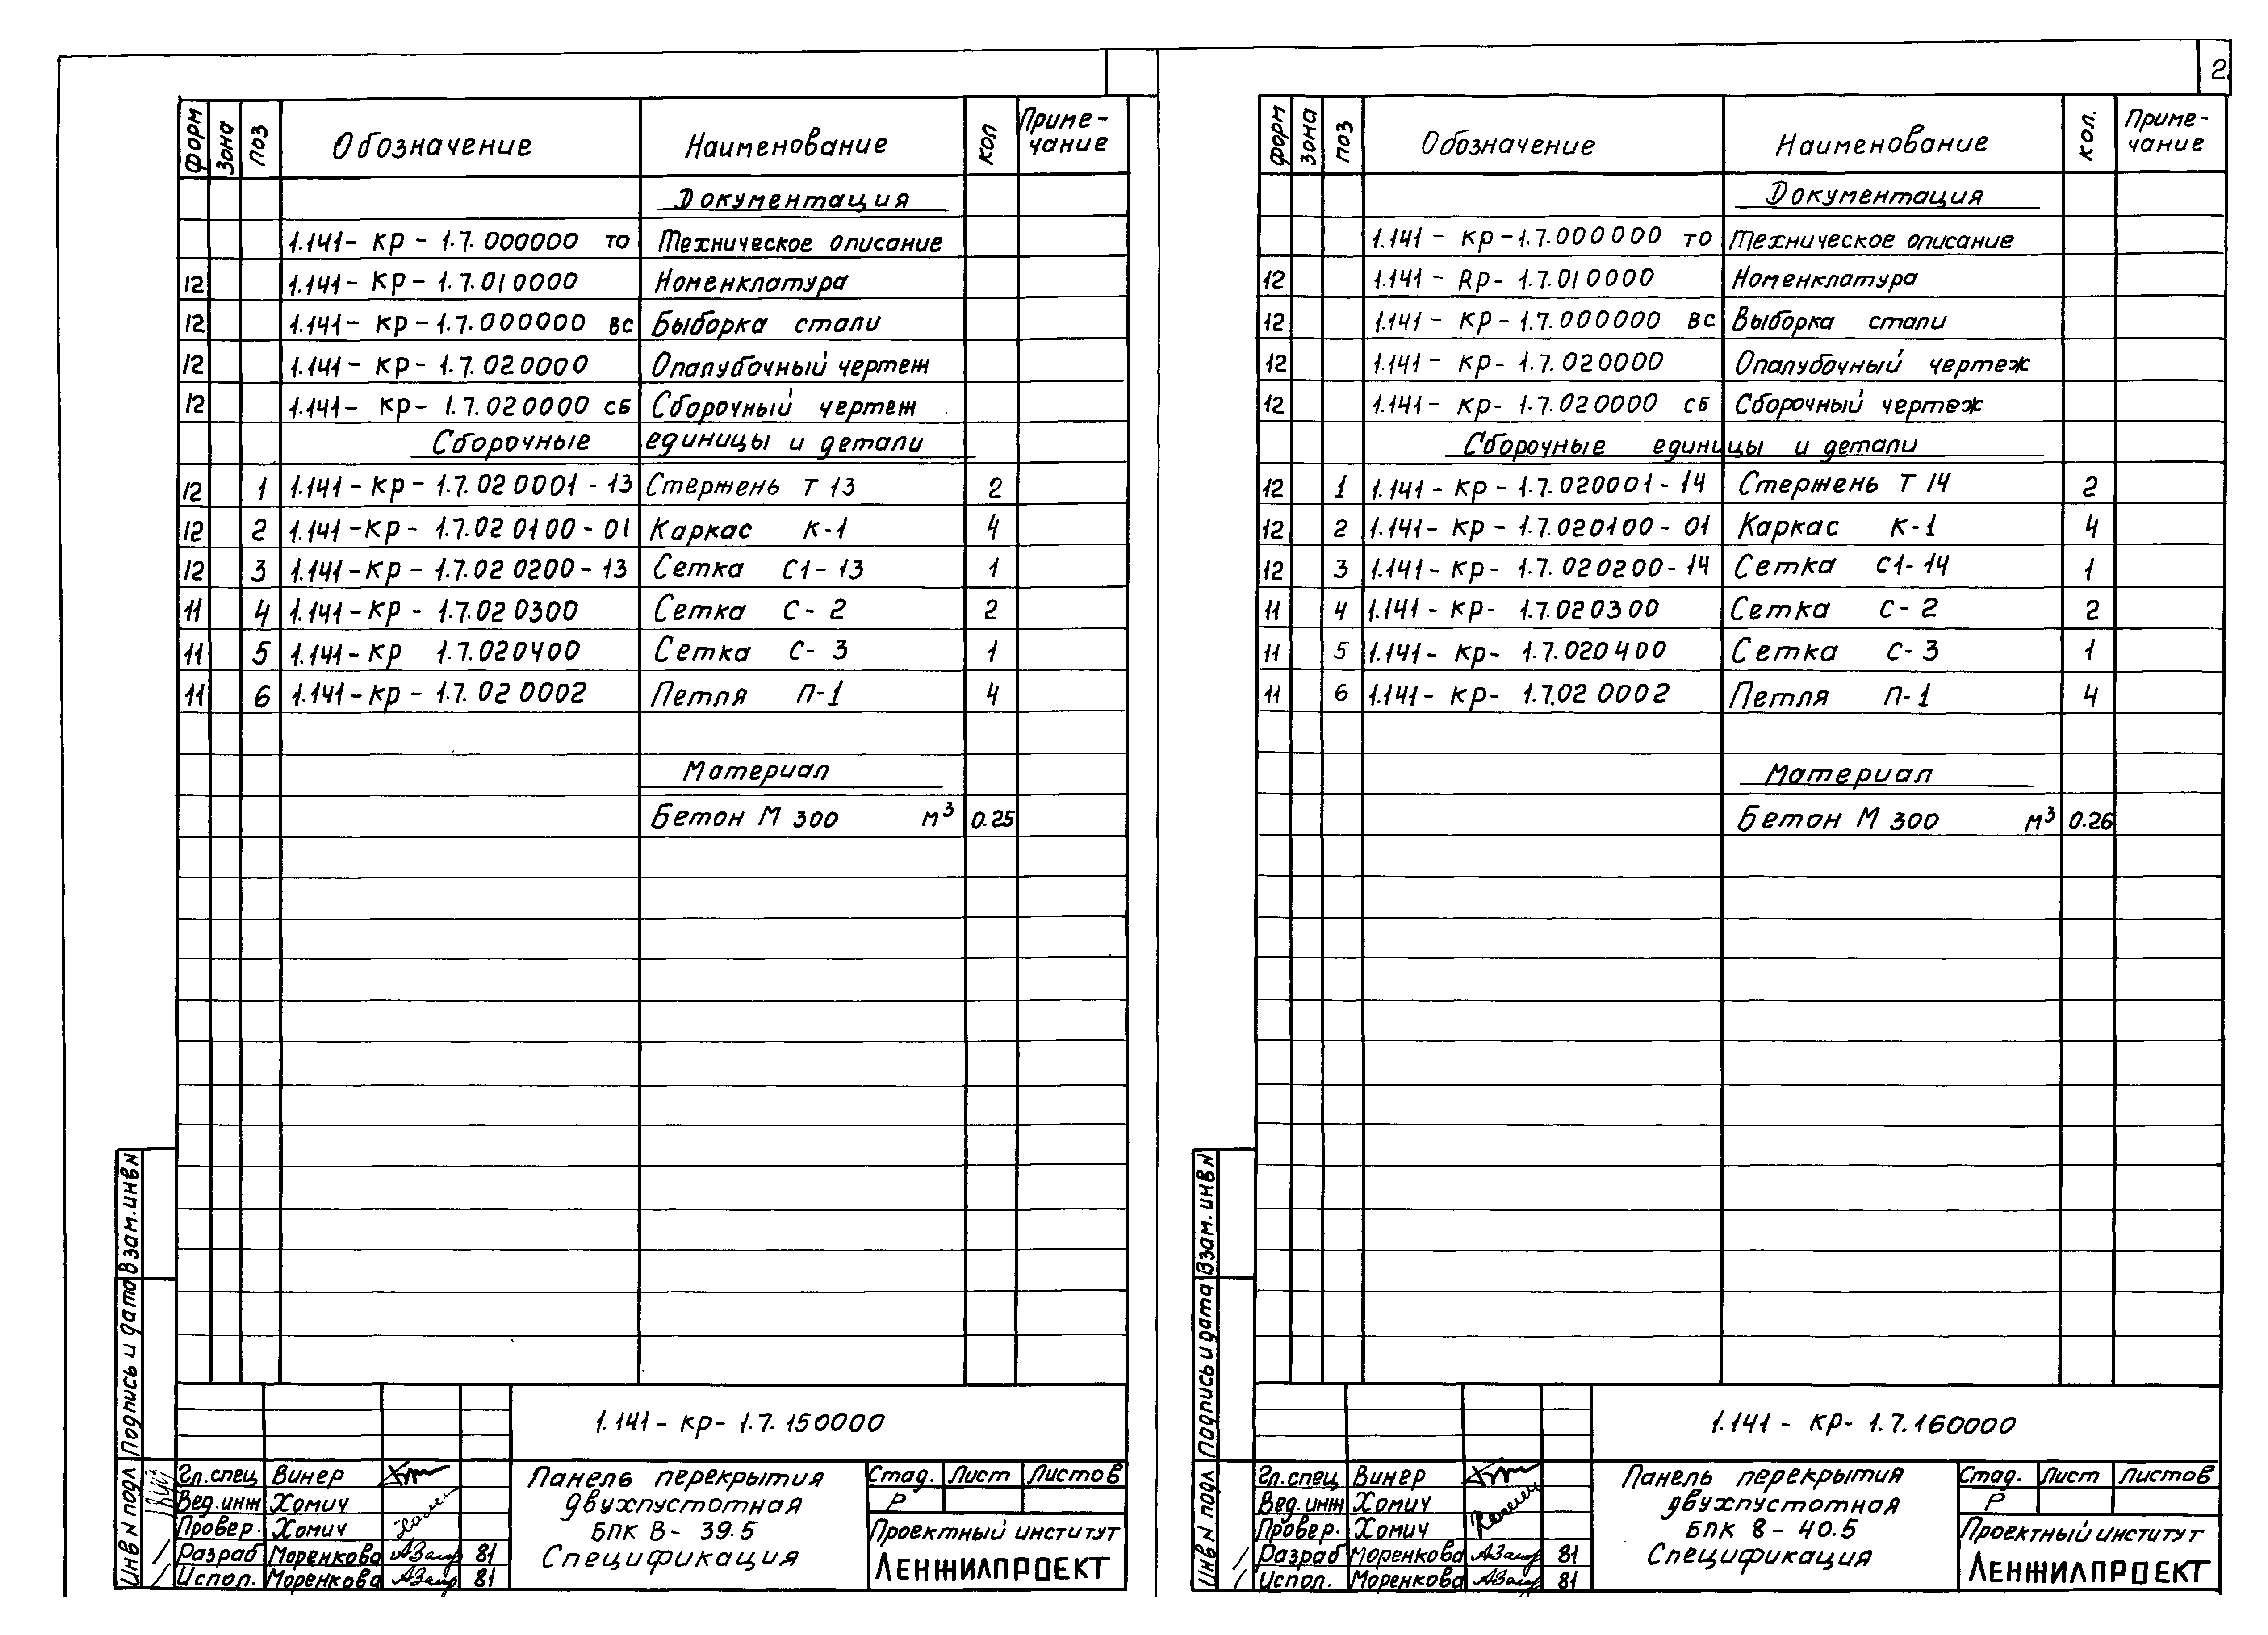 форм зона поз Обозначение Наименование кол Приме-
чание
Документация
1.141- кр - 1.7. 000000 то Техническое описание
12 1.141- кр - 1.7. 010000 Номенклатура
12 1.141- кр - 1.7. 000000 вс Выборка стали
12 1.141- кр - 1.7. 020000 Опалубочный чертеж
12 1.141- кр- 1.7. 020000 сб Сборочный чертеж
Сборочные единицы и детали
12 1 1.141-кр- 1.7. 020001 - 13 Стержень т 13 2
12 2 1.141-кр- 1.7. 020100 - 01 Каркас к-1 4
12 3 1.141-кр - 1.7. 020200 - 13 Сетка с1-13 1
11 4 1.141-кр - 1.7. 020300 Сетка с-2 2
11 5 1.141-кр 1.7. 020400 Сетка с-3 1
11 6 1.141-кр - 1.7. 020002 Петля п-1 4
Материал
Бетон М 300 м³ 0.25
Взам.инв N
Подпись и дата
Инв N подл
1.141- кр- 1.7. 150000
Гл.спец Винер
Вед.инж Хомич
Провер. Хомич
Разраб Моренкова 81
Испол. Моренкова 81
Панель перекрытия
двухпустотная
БПК 8- 39.5
Спецификация
Стад. Лист Листов
Р
Проектный институт
ЛЕНЖИЛПРОЕКТ
2
форм зона поз Обозначение Наименование кол. Приме-
чание
Документация
1.141- кр -1.7. 000000 то Техническое описание
12 1.141 - кр- 1.7. 010000 Номенклатура
12 1.141 - кр-1.7. 000000 вс Выборка стали
12 1.141- кр- 1.7. 020000 Опалубочный чертеж
12 1.141- кр- 1.7. 020000 сб Сборочный чертеж
Сборочные единицы и детали
12 1 1.141- кр- 1.7. 020001-14 Стержень т 14 2
12 2 1.141- кр - 1.7. 020100 - 01 Каркас к-1 4
12 3 1.141- кр- 1.7. 020200-14 Сетка с1-14 1
11 4 1.141- кр- 1.7. 020300 Сетка с-2 2
11 5 1.141- кр- 1.7. 020400 Сетка с-3 1
11 6 1.141- кр- 1.7. 020002 Петля п-1 4
Материал
Бетон М 300 м³ 0.26
Взам.инв N
Подпись и дата
Инв N подл
1.141 - кр- 1.7. 160000
Гл.спец Винер
Вед.инж Хомич
Провер. Хомич
Разраб Моренкова 81
Испол. Моренкова 81
Панель перекрытия
двухпустотная
БПК 8- 40.5
Спецификация
Стад. Лист Листов
Р
Проектный институт
ЛЕНЖИЛПРОЕКТ